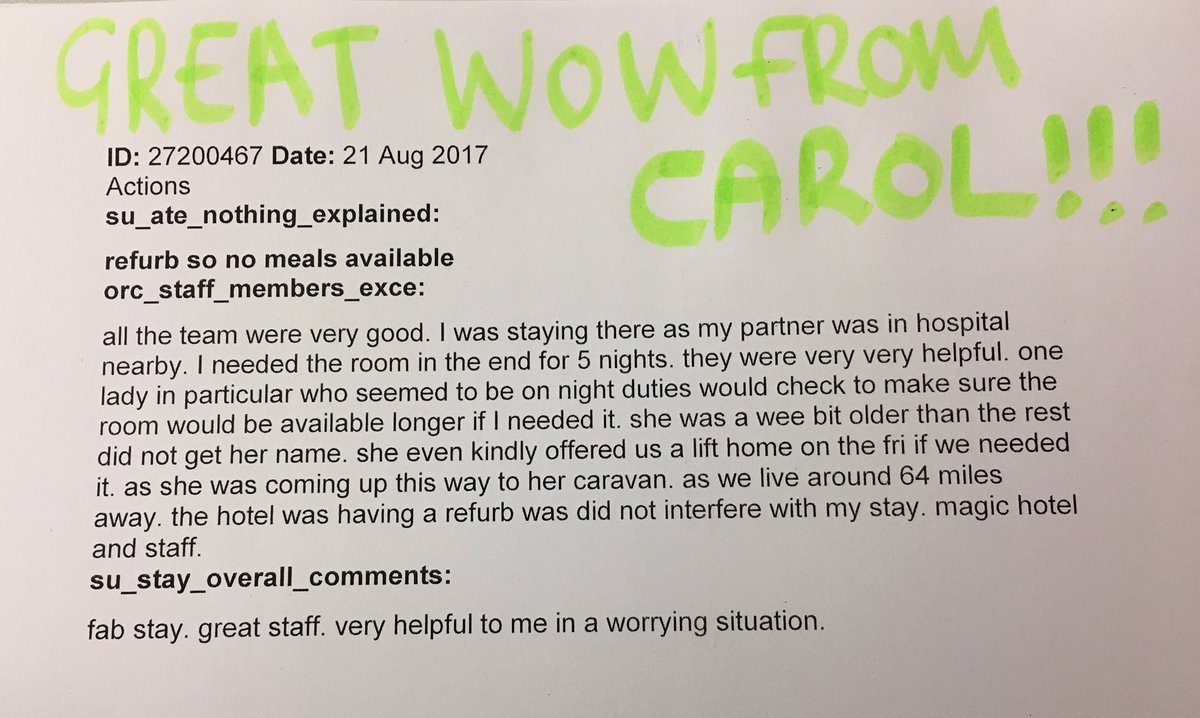 GREAT WOW FROM
CAROL!!!
ID: 27200467 Date: 21 Aug 2017
Actions
su_ate_nothing_explained:
refurb so no meals available
orc_staff_members_exce:
all the team were very good. I was staying there as my partner was in hospital
nearby. I needed the room in the end for 5 nights. they were very very helpful. one
lady in particular who seemed to be on night duties would check to make sure the
room would be available longer if I needed it. she was a wee bit older than the rest
did not get her name. she even kindly offered us a lift home on the fri if we needed
it. as she was coming up this way to her caravan. as we live around 64 miles
away. the hotel was having a refurb was did not interfere with my stay. magic hotel
and staff.
su_stay_overall_comments:
fab stay. great staff. very helpful to me in a worrying situation.